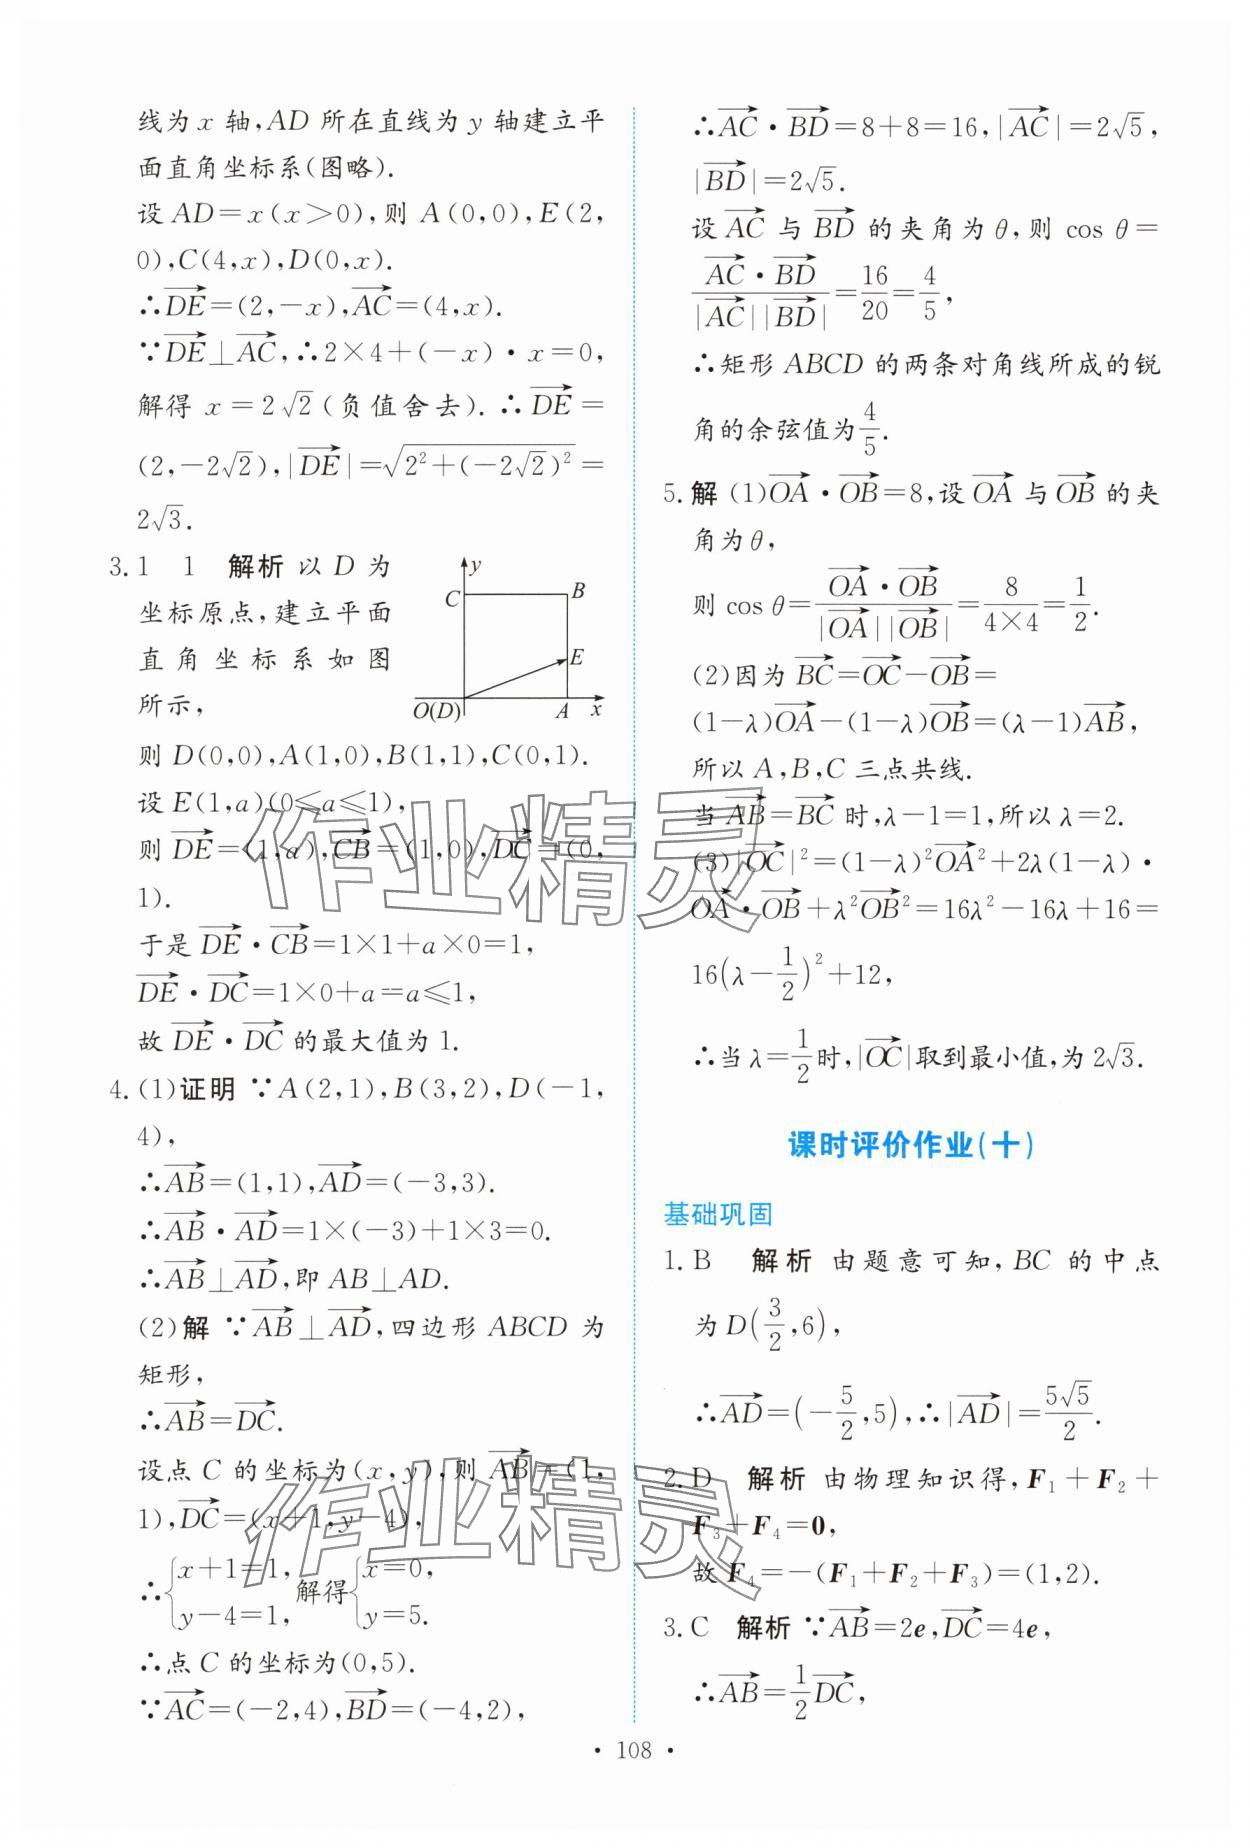 线为 x 轴,AD 所在直线为 y 轴建立平
面直角坐标系(图略).
设 AD=x(x>0),则 A(0,0),E(2,
0),C(4,x),D(0,x).
∴\overrightarrow{DE}=(2,-x),\overrightarrow{AC}=(4,x).
∵\overrightarrow{DE}⊥\overrightarrow{AC},∴2×4+(-x)·x=0,
解得 x=2√2(负值舍去).∴\overrightarrow{DE}=
(2,-2√2),|\overrightarrow{DE}|=\sqrt{2^2+(-2√2)^2}=
2√3.
3.1 1 解析 以 D 为
坐标原点,建立平面
直角坐标系如图
所示,
y
C
B
E
O(D)
A
x
则 D(0,0),A(1,0),B(1,1),C(0,1).
设 E(1,a)(0≤a≤1),
则 \overrightarrow{DE}=(1,a),\overrightarrow{CB}=(1,0),\overrightarrow{DC}=(0,
1).
于是 \overrightarrow{DE}·\overrightarrow{CB}=1×1+a×0=1,
\overrightarrow{DE}·\overrightarrow{DC}=1×0+a=a≤1,
故 \overrightarrow{DE}·\overrightarrow{DC} 的最大值为 1.
4.(1)证明 ∵A(2,1),B(3,2),D(-1,
4),
∴\overrightarrow{AB}=(1,1),\overrightarrow{AD}=(-3,3).
∴\overrightarrow{AB}·\overrightarrow{AD}=1×(-3)+1×3=0.
∴\overrightarrow{AB}⊥\overrightarrow{AD},即 AB⊥AD.
(2)解 ∵\overrightarrow{AB}⊥\overrightarrow{AD},四边形 ABCD 为
矩形,
∴\overrightarrow{AB}=\overrightarrow{DC}.
设点 C 的坐标为(x,y),则 \overrightarrow{AB}=(1,
1),\overrightarrow{DC}=(x+1,y-4),
∴{x+1=1, y-4=1, 解得{x=0, y=5.
∴点 C 的坐标为(0,5).
∵\overrightarrow{AC}=(-2,4),\overrightarrow{BD}=(-4,2),
∴\overrightarrow{AC}·\overrightarrow{BD}=8+8=16,|\overrightarrow{AC}|=2√5,
|\overrightarrow{BD}|=2√5.
设 \overrightarrow{AC} 与 \overrightarrow{BD} 的夹角为 θ,则 cos θ=
\frac{\overrightarrow{AC}·\overrightarrow{BD}}{|\overrightarrow{AC}||\overrightarrow{BD}|}=\frac{16}{20}=\frac{4}{5},
∴矩形 ABCD 的两条对角线所成的锐
角的余弦值为\frac{4}{5}.
5.解 (1)\overrightarrow{OA}·\overrightarrow{OB}=8,设 \overrightarrow{OA} 与 \overrightarrow{OB} 的夹
角为 θ,
则 cos θ=\frac{\overrightarrow{OA}·\overrightarrow{OB}}{|\overrightarrow{OA}||\overrightarrow{OB}|}=\frac{8}{4×4}=\frac{1}{2}.
(2)因为 \overrightarrow{BC}=\overrightarrow{OC}-\overrightarrow{OB}=
(1-λ)\overrightarrow{OA}-(1-λ)\overrightarrow{OB}=(λ-1)\overrightarrow{AB},
所以 A,B,C 三点共线.
当 \overrightarrow{AB}=\overrightarrow{BC} 时,λ-1=1,所以 λ=2.
(3)|\overrightarrow{OC}|^2=(1-λ)^2\overrightarrow{OA}^2+2λ(1-λ)·
\overrightarrow{OA}·\overrightarrow{OB}+λ^2\overrightarrow{OB}^2=16λ^2-16λ+16=
16(λ-\frac{1}{2})^2+12,
∴当 λ=\frac{1}{2}时,|\overrightarrow{OC}|取到最小值,为 2√3.
课时评价作业(十)
基础巩固
1.B 解析 由题意可知,BC 的中点
为 D(\frac{3}{2},6),
∴\overrightarrow{AD}=(-\frac{5}{2},5),∴|\overrightarrow{AD}|=\frac{5√5}{2}.
2.D 解析 由物理知识得,F₁+F₂+
F₃+F₄=0,
故 F₄=-(F₁+F₂+F₃)=(1,2).
3.C 解析 ∵\overrightarrow{AB}=2e,\overrightarrow{DC}=4e,
∴\overrightarrow{AB}=\frac{1}{2}\overrightarrow{DC},
· 108 ·
作业精灵
作业精灵